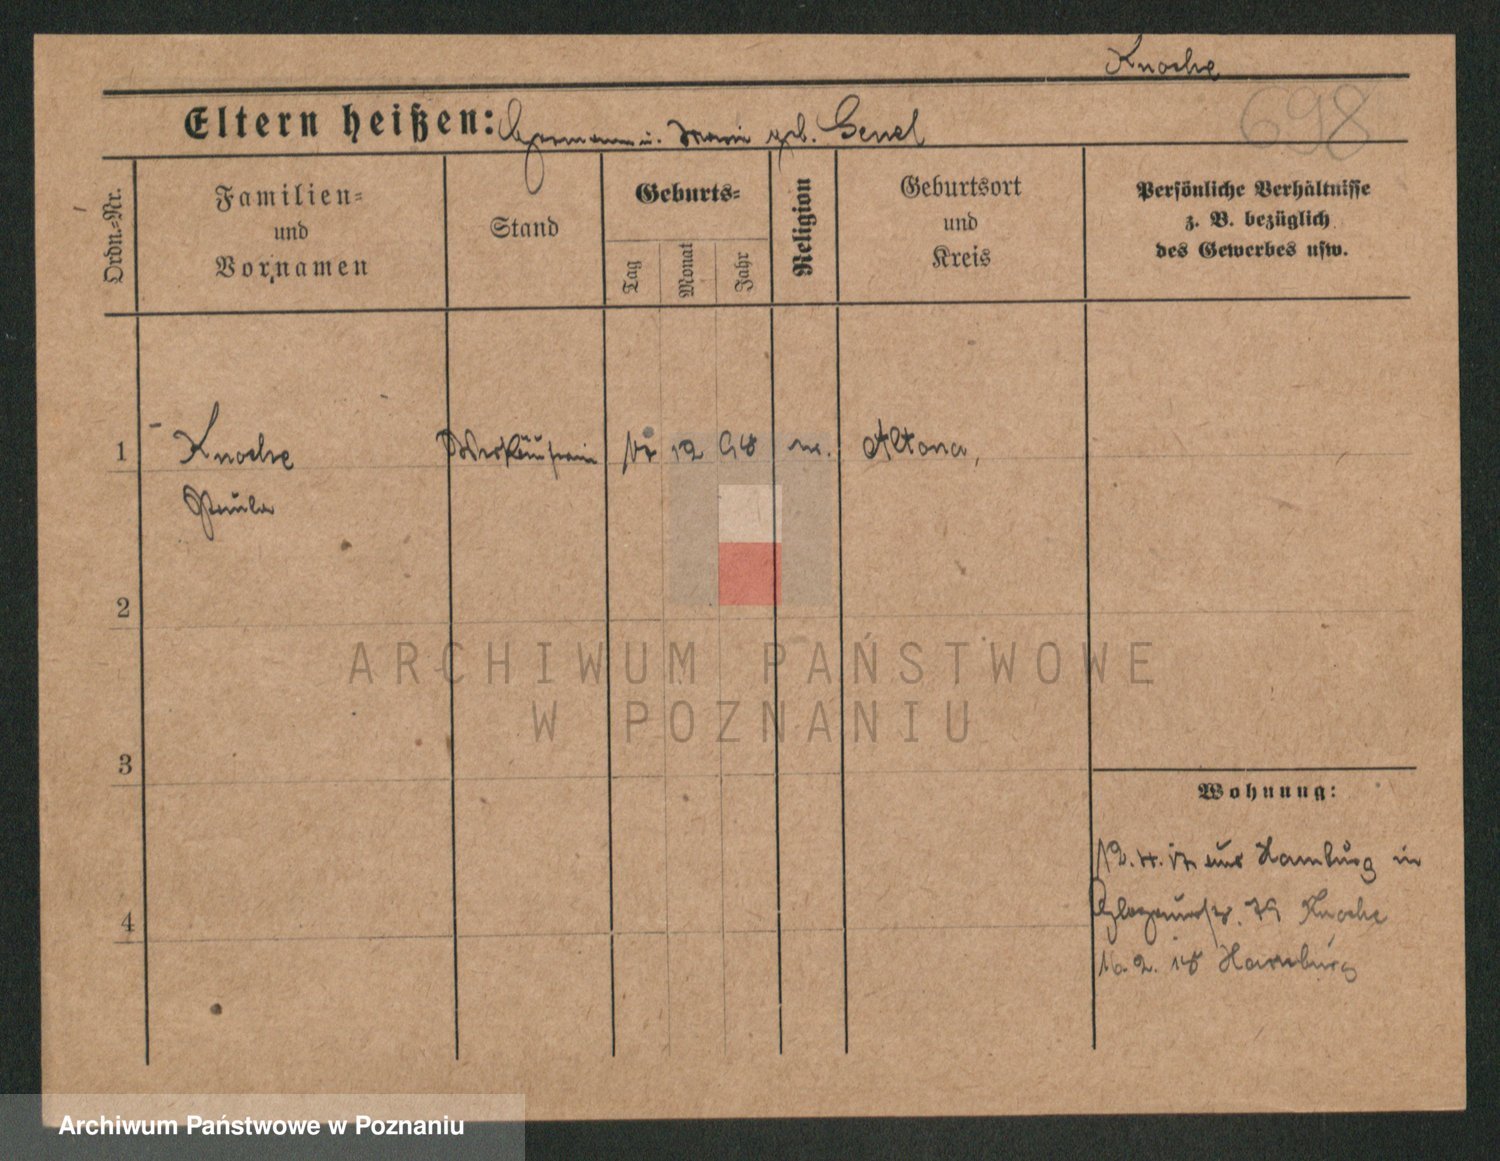 Knoche
698
Eltern heißen: Hermann u. Marie geb. Gensel
Ordn.=Nr.
Familien=
und
Vornamen
Stand
Geburts=
Tag
Monat
Jahr
Religion
Geburtsort
und
Kreis
Persönliche Verhältnisse
z. B. bezüglich
des Gewerbes usw.
1
Knoche
Verkäuferin
12
98
Altona,
Paula
2
ARCHIWUM PAŃSTWOWE
W POZNANIU
3
Wohnung:
12.4.17 aus Hamburg in
79 Knoche
4
16.2.18 Hamburg
Archiwum Państwowe w Poznaniu